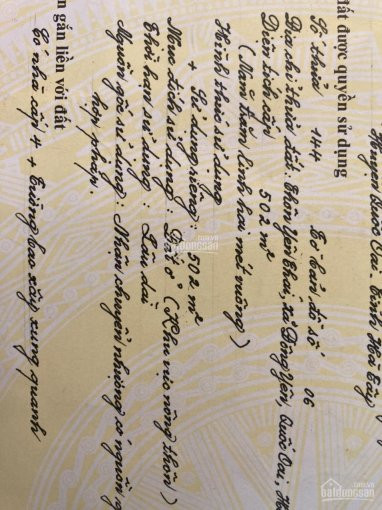 Huyện Quốc Oai. Tỉnh Hà Tây
đất được quyền sử dụng
Số thửa 144 Tờ bản đồ số 06
Địa chỉ thửa đất: Thôn Yên Thái, xã Đông Yên, Quốc Oai, H
Diện tích cấp 502 m²
(Năm trăm linh hai mét vuông)
Hình thức sử dụng
+ Sử dụng riêng: 502 m²
Mục đích sử dụng: Đất ở (Khu vực nông thôn)
Thời hạn sử dụng: Lâu dài
Nguồn gốc sử dụng: Nhận chuyển nhượng có nguồn g
hợp pháp.
n gắn liền với đất
Có nhà cấp 4 + Tường bao xây xung quanh
batdongsan